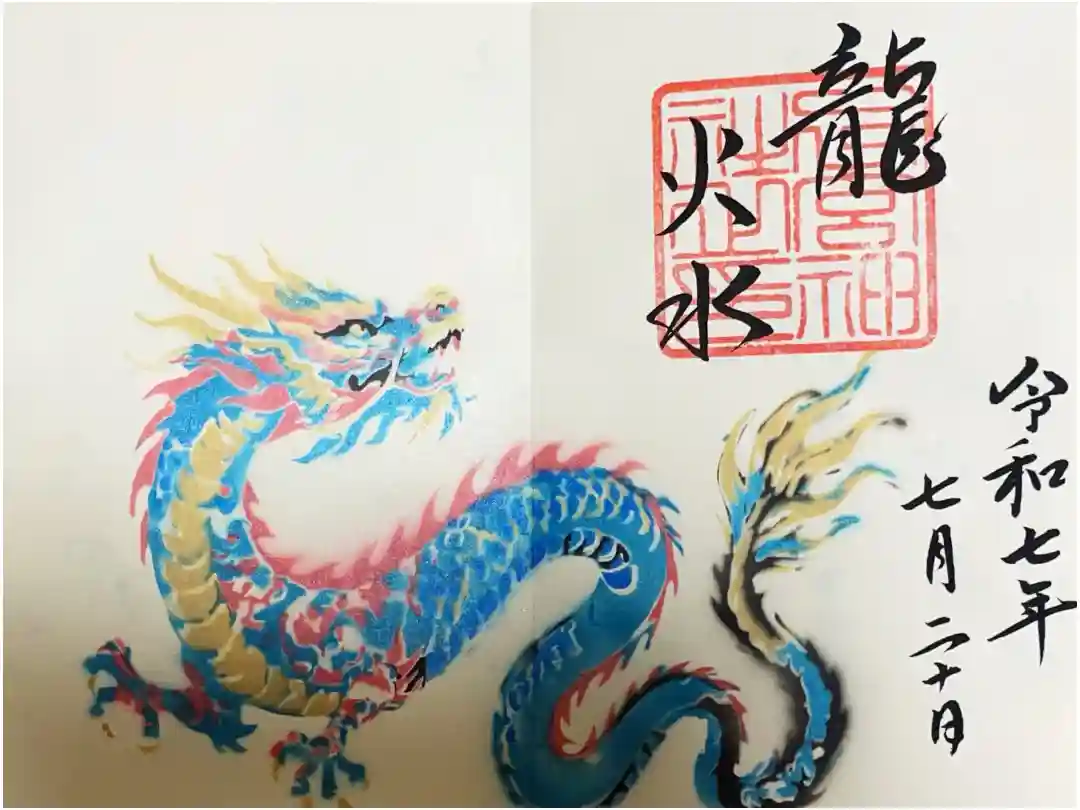 龍
火水
宮神
社
令和七年
七月二十日